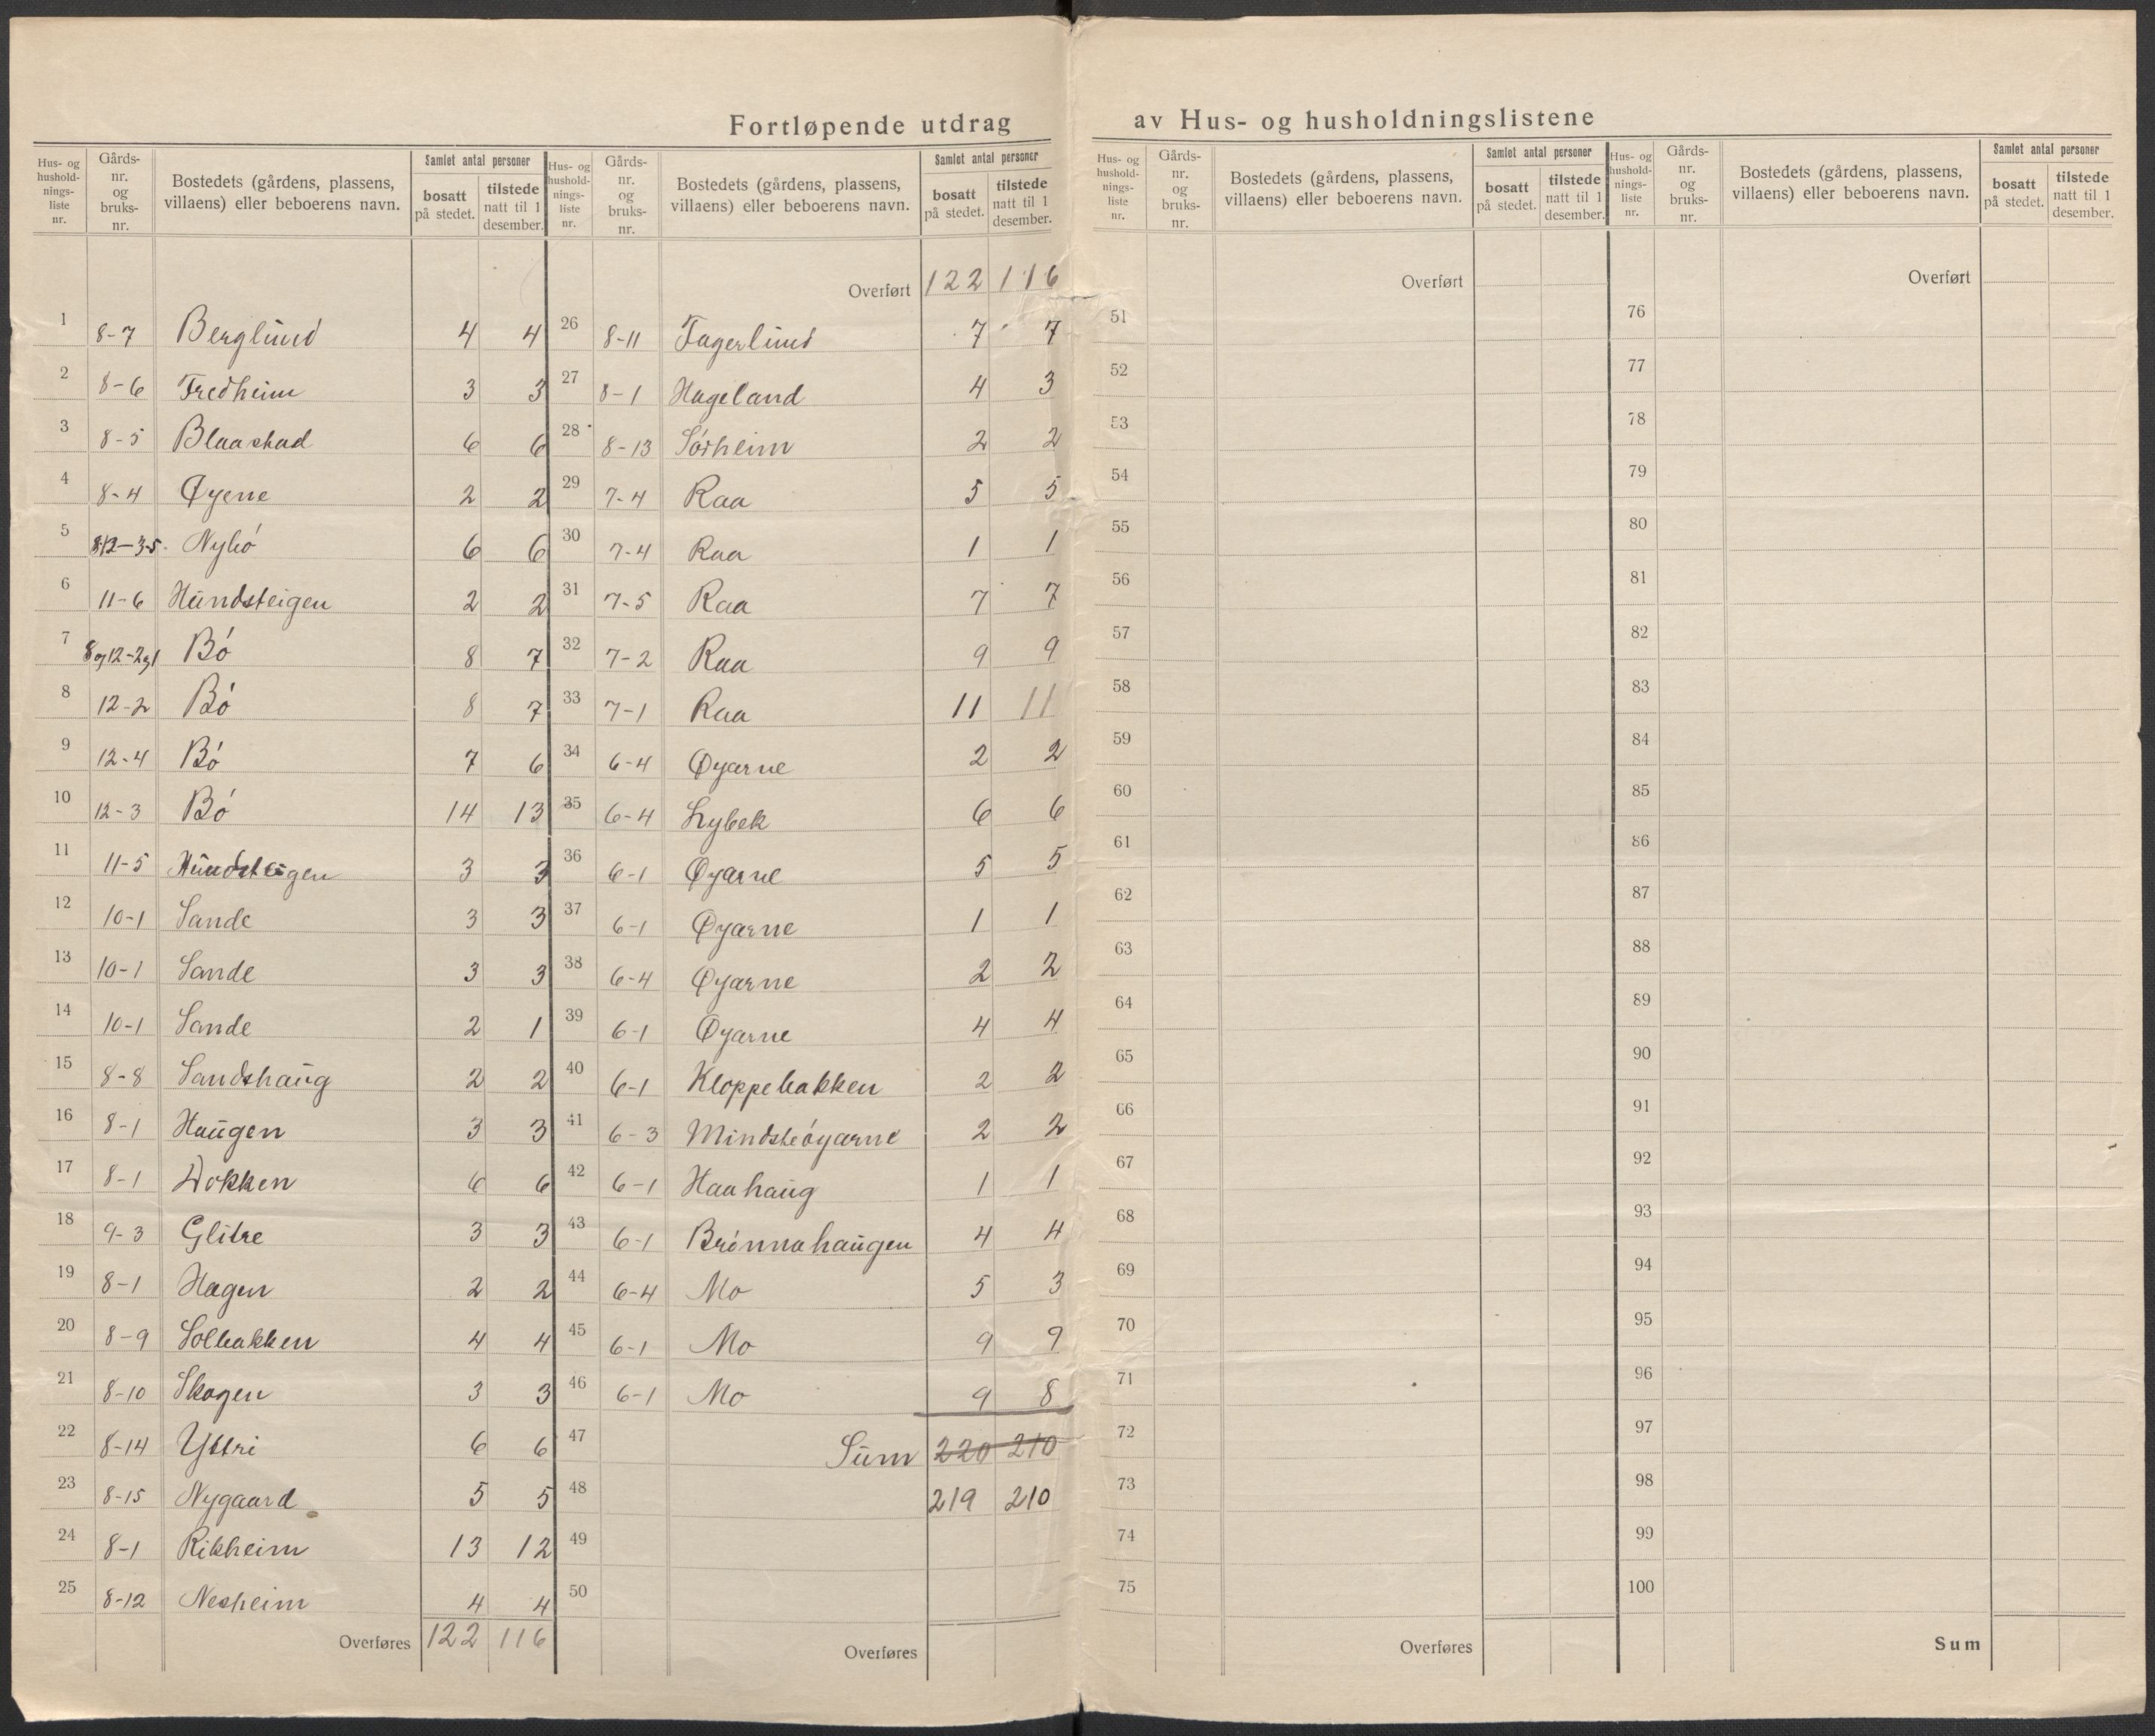 Fortløpende utdrag av Hus- og husholdningslistene
Hus- og hushold-nings-liste nr. | Gårds-nr. og bruks-nr. | Bostedets (gårdens, plassens, villaens) eller beboerens navn. | Samlet antal personer | bosatt på stedet. | tilstede natt til 1 desember.
1 8-7 Berglund 4 4
2 8-6 Fredheim 3 3
3 8-5 Blaastad 6 6
4 8-4 Øyene 2 2
5 8-12-3-5. Nybó 6 6
6 11-6 Hundsteigen 2 2
7 8og12-2og1 Bó 8 7
8 12-2 Bó 8 7
9 12-4 Bó 7 6
10 12-3 Bó 14 13
11 11-5 Hundsteigen 3 3
12 10-1 Sande 3 3
13 10-1 Sande 3 3
14 10-1 Sande 2 1
15 8-8 Sandshaug 2 2
16 8-1 Haugen 3 3
17 8-1 Dokken 6 6
18 9-3 Glitre 3 3
19 8-1 Hagen 2 2
20 8-9 Solbakken 4 4
21 8-10 Skogen 3 3
22 8-14 Yttri 6 6
23 8-15 Nygaard 5 5
24 8-1 Rikheim 13 12
25 8-12 Nesheim 4 4
Overføres 122 116
Hus- og hushold-nings-liste nr. | Gårds-nr. og bruks-nr. | Bostedets (gårdens, plassens, villaens) eller beboerens navn. | Samlet antal personer | bosatt på stedet. | tilstede natt til 1 desember.
Overført 122 116
26 8-11 Fagerlund 7 7
27 8-1 Hageland 4 3
28 8-13 Sórheim 2 2
29 7-4 Raa 5 5
30 7-4 Raa 1 1
31 7-5 Raa 7 7
32 7-2 Raa 9 9
33 7-1 Raa 11 11
34 6-4 Øyarne 2 2
35 6-4 Lybek 6 6
36 6-1 Øyarne 5 5
37 6-1 Øyarne 1 1
38 6-4 Øyarne 2 2
39 6-1 Øyarne 4 4
40 6-1 Kloppebakken 2 2
41 6-3 Mindsteóyarne 2 2
42 6-1 Haahaug 1 1
43 6-1 Brónnahaugen 4 4
44 6-4 Mo 5 3
45 6-1 Mo 9 9
46 6-1 Mo 9 8
47 Sum 220 210
48 219 210
49
50
Overføres
Hus- og hushold-nings-liste nr. | Gårds-nr. og bruks-nr. | Bostedets (gårdens, plassens, villaens) eller beboerens navn. | Samlet antal personer | bosatt på stedet. | tilstede natt til 1 desember.
Overført
51
52
53
54
55
56
57
58
59
60
61
62
63
64
65
66
67
68
69
70
71
72
73
74
75
Overføres
Hus- og hushold-nings-liste nr. | Gårds-nr. og bruks-nr. | Bostedets (gårdens, plassens, villaens) eller beboerens navn. | Samlet antal personer | bosatt på stedet. | tilstede natt til 1 desember.
Overført
76
77
78
79
80
81
82
83
84
85
86
87
88
89
90
91
92
93
94
95
96
97
98
99
100
Sum